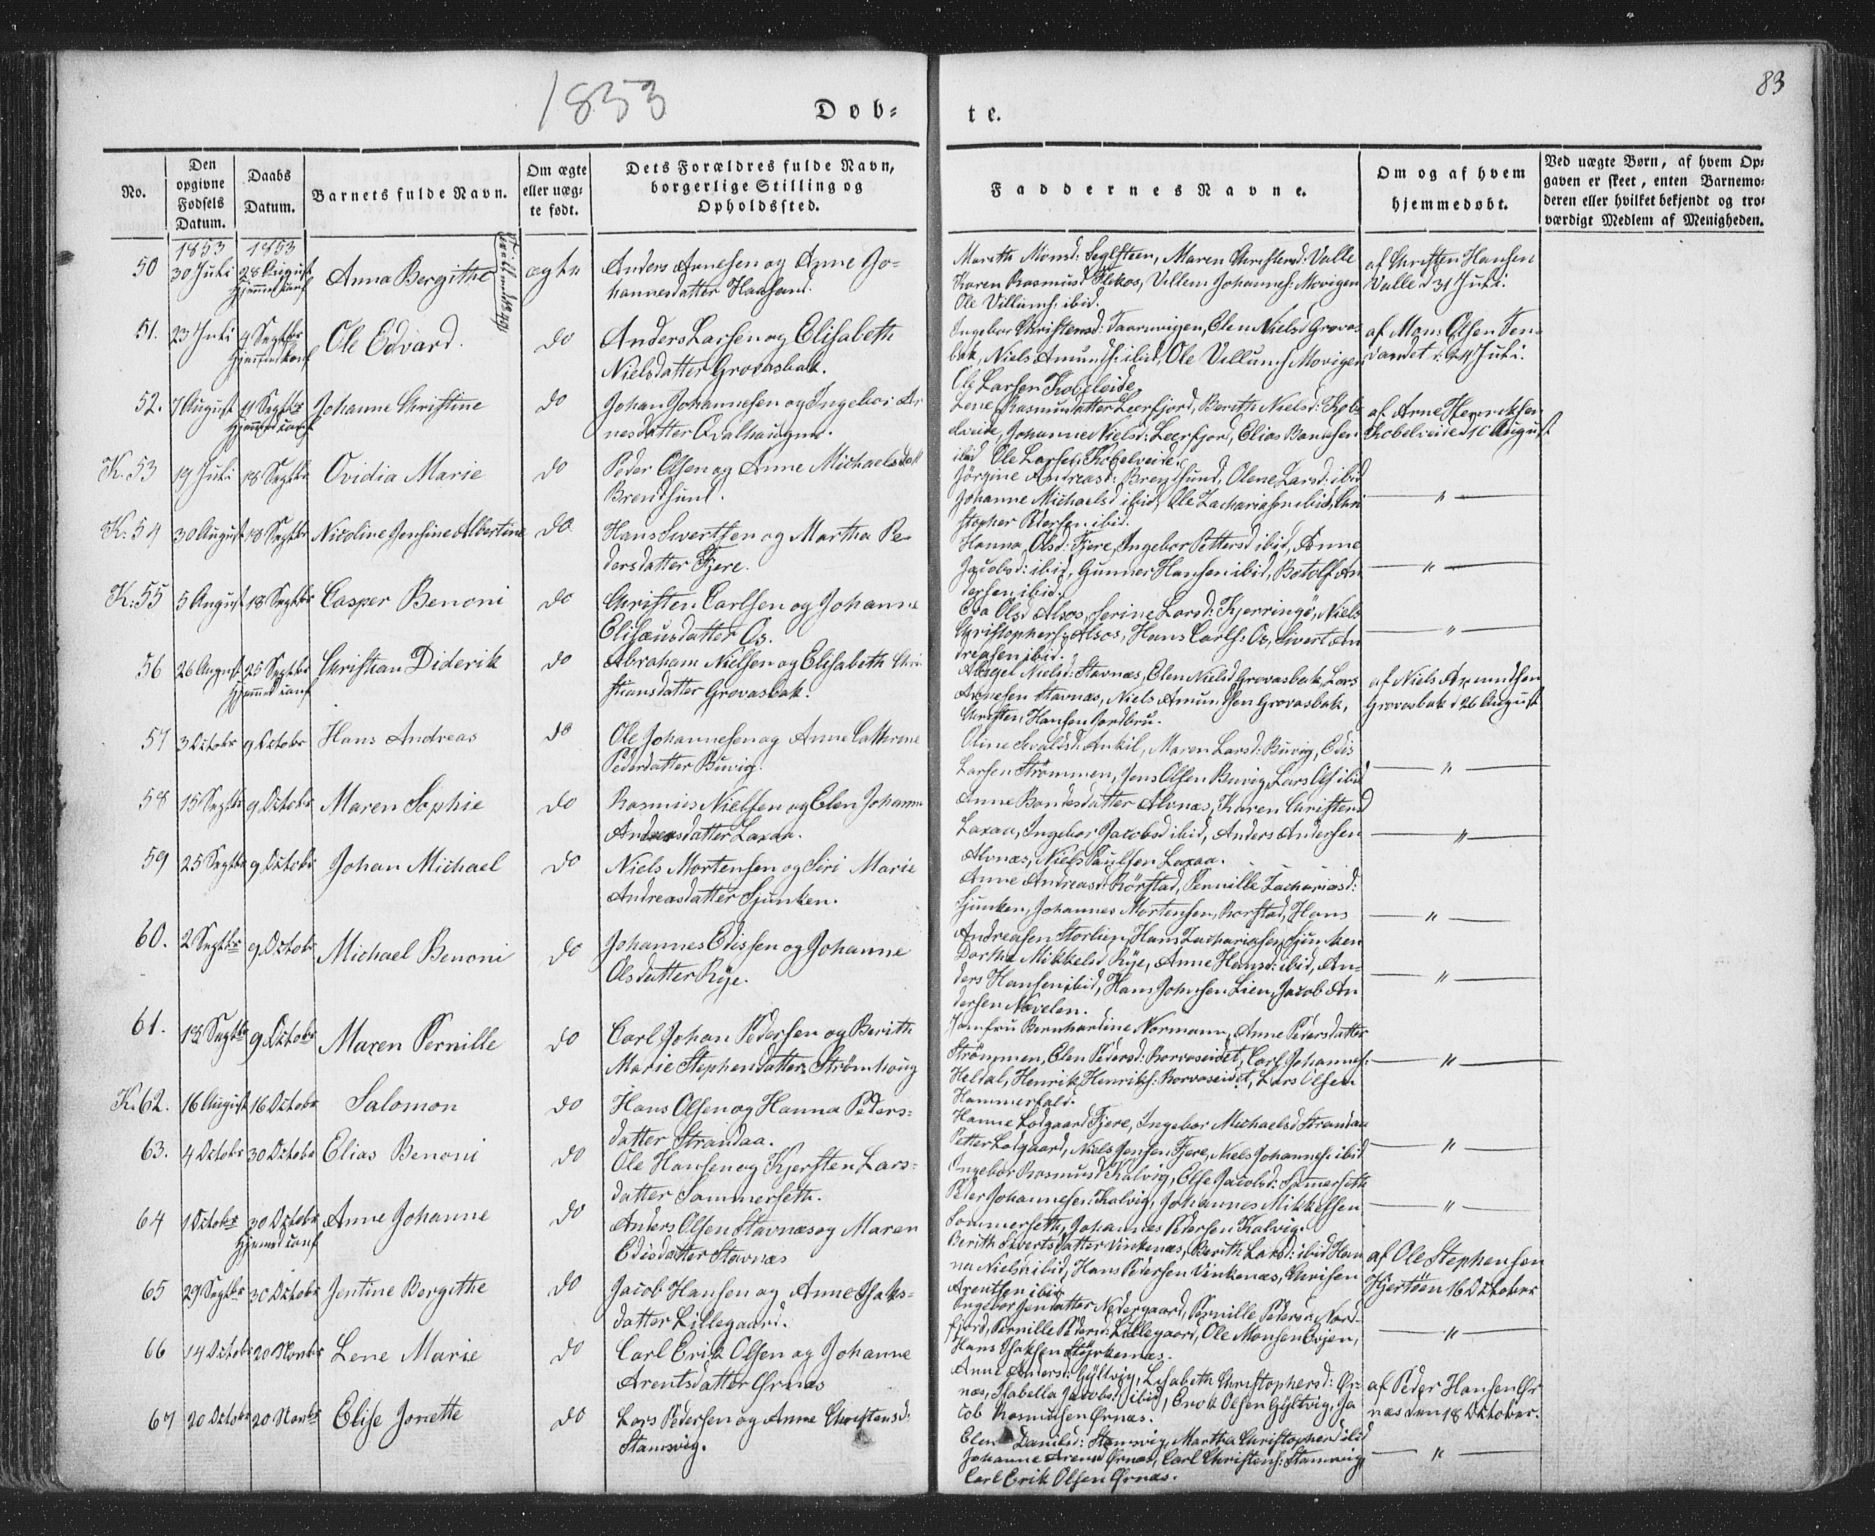 1853
83
Döb-
te.
No.
Den opgivne Fødsels Datum.
Daabs Datum.
Barnets fulde Navn.
Om ægte eller uæg-te født.
Dets Forældres fulde Navn, borgerlige Stilling og Opholdssted.
Faddernes Navne.
Om og af hvem hjemmedøbt.
Ved uægte Børn, af hvem Op-gaven er skeet, enten Barnemo-deren eller hvilket bekjendt og tro-værdigt Medlem af Menigheden.
1853 1853
50 30 Juli 28 August Anna Bergithe ægte Anders Arnesen og Anne Jo-
Hjemmed conf hannesdatter
Mareth Monsd: Seglsteen, Maren Christensd: Valle
Karen Rasmusd Flekos, Villem Johannes: Movigen
Ole Villums: ibid.
af Christen Hansen
Valle d 31 Juli.
51. 23 Juli 4 Septbr Ole Edvard. do Anders Larsen og Elisabeth
Hjemmed conf Nielsdatter Grovasbak.
Ingebor Christensd: Taarnvigen, Elen Nielsd Grovas-
bak, Niels Amunds: ibid, Ole Villums: Movigen
Ole Larsen Kobelveide
af Mons Olsen
24 Juli.
52. 7 August 11 Septbr Johanne Christine do Johan Johannesen og Ingebor Ar
Hjemmed conf nesdatter Qvalhaugen.
Lene Rasmusdatter Leerfjord, Bereth Nielsd: Kob
elveide, Johanne Nielsd: Leerfjord, Elias Bandsen
ibid Ole Larsen, Kobelveide.
af Arne Henriksen
Kobelveide d 10 August
K. 53 19 Juli 18 Septbr Ovidia Marie do Peder Olsen og Anne Michaelsdatt
Brendsund.
Jørgine Andreasd: Brendsund, Olene Larsd: ibid
Johanne Michaelsd ibid, Ole Zachariasen ibid, Chri
stopher Pedersen ibid.
"
K. 54 30 August 18 Septbr Nicoline Jensine Albertine do Hans Sivertsen og Martha Pe-
dersdatter Fjere.
Hanna Olsd: Fjere, Ingebor Pettersd ibid, Anne
Jacobsd: ibid, Gunner Hansen ibid, Botolf An
dersen ibid.
"
K. 55 5 August 18 Septbr Casper Benoni do Christen Carlsen og Johanne
Elisæusdatter Os.
Eva Olsd Alsos, Serine Larsd: Kjerringø, Niels
Christophers: Alsos, Hans Carls: Os, Sivert An
dreasen ibid.
"
56 26 August 25 Septbr Christian Diderik do Abraham Nielsen og Elisabeth Chri
Hjemmed conf stiansdatter Grovasbak.
Nielsd: Stavnæs, Elen Nielsd Grovasbak, Lars
Arnesen Stavnæs, Niels Amundsen Grovasbak,
Christen Hansen
af Niels Amundsen
Grovasbak d 26 August
57 3 Octobr 9 Octobr Hans Andreas do Ole Johannesen og Anne Cathrine
Pedersdatter Buvig.
Oline Ankil, Maren Larsd: Buvig, Edis
Larsen Strømmen, Jens Olsen Buvig, Lars Ols ibid
"
58 15 Septbr 9 Octobr Maren Sophie do Rasmus Nielsen og Elen Johanna
Andreasdatter Laxaa.
Anne Bandsdatter Alvnæs, Karen Christensd
Laxaa, Ingebor Jacobsd ibid, Anders Andersen
Alvnæs, Niels Paulsen Laxaa.
"
59 25 Septbr 9 Octobr Johan Michael do Niels Mortensen og Siri Marie
Andreasdatter Sjunken.
Anne Andreasd Rörstad, Pernille Zachariasd:
Sjunken, Johannes Mortensen, Rorstad, Hans
Andreasen Storlien, Hans Zachariasen, Sjunken
"
60. 2 Septbr 9 Octobr Michael Benoni do Johannes Edissen og Johanne
Olsdatter Rye.
Dorthe Mikkelsd Rye, Anne Hansd: ibid, An-
ders Hansen ibid, Hans Johnsen Lien, Jacob An
dersen Nævelen.
"
61. 18 Septbr 9 Octobr Maren Pernille do Carl Johan Pedersen og Berith
Marie Stephensdatter Strømhoug
Jomfru Bernhardine Normann, Anne Pedersdatter
Strømmen, Elen Pedersd: Rorvaseidet, Carl Johannes:
Heldal, Henrik Henriks: Rorvaseidet, Lars Olsen
Hammerfald.
"
K. 62. 16 August 16 Octobr Salomon do Hans Olsen og Hanna Peders-
datter Strandaa.
Hanne Lodgaard Fjere, Ingebor Michaelsd Strandaa
Petter Lodgaard, Niels Jensen Fjere, Niels Johannes: ibid
"
63. 4 Octobr 30 Octobr Elias Benoni do Ole Hansen og Kjersten Lars-
datter Sommerseth.
Ingebor Rasmusd Kalvig, Else Jacobsd: Somerseth
Peder Johannesen: Kalvig, Johannes Mikkelsen
Sommerseth, Johannes Pedersen Kalvig.
"
64 1 Octobr 30 Octobr Anne Johanne do Anders Olsen Stavnæs og Maren
Hjemmed conf Edisdatter Stavnæs
Berith Sivertsdatter Vinkenæs, Berith Larsd: ibid Han
na Nielsd ibid, Hans Pedersen Vinkenæs, Chrisen
Arentsen ibid
af Ole Stephensen
Hjertöen 16 Octobr
65 29 Septbr 30 Octobr Jentine Bergithe do Jacob Hansen og Anne Isaks-
datter Lillegaard.
Ingebor Jensdatter Nedergaard, Pernille Pedersd: Nord-
fjord, Pernille Pedersd: Lillegaard, Ole Monsen Evjen,
Hans Isaksen Styrkesnæs.
"
66 14 Octobr 20 Novbr Lene Marie do Carl Erik Olsen og Johanne
Arentsdatter Ørnæs
Anne Andersd: Gyltvig, Lisabeth Christophersd: Ør-
næs, Isabella Jacobsd, ibid, Enok Olsen Gyltvig, Ja
cob Rasmusen Ørnæs.
af Peder Hansen Ør
næs den 18 Oktober.
67 20 Octobr 20 Novbr Elise Jonette do Lars Pedersen og Anne Christensd:
Stamsvig.
Elen Danielsd: Stamsvig, Martha Christophersd ibid
Johanne Arensd Ørnæs, Carl Christens: Stamsvig,
Carl Erik Olsen Ørnæs.
"